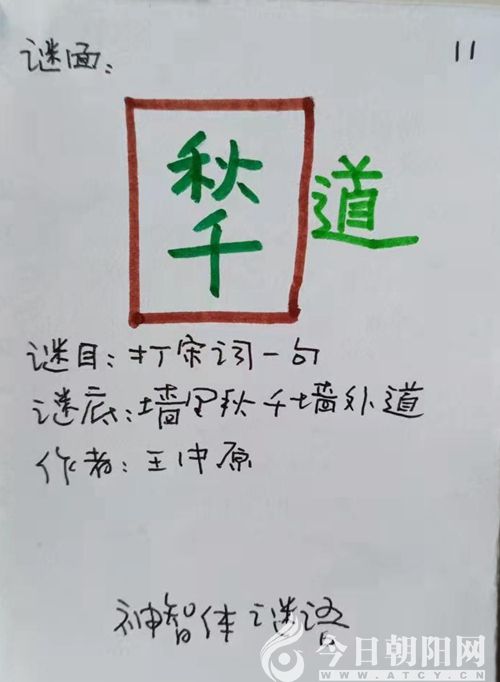 谜面： 11
秋
千
道
谜目：打宋词一句
谜底：墙里秋千墙外道
作者：王仲原
神智体谜语
今日朝阳网
WWW.ATCY.CN